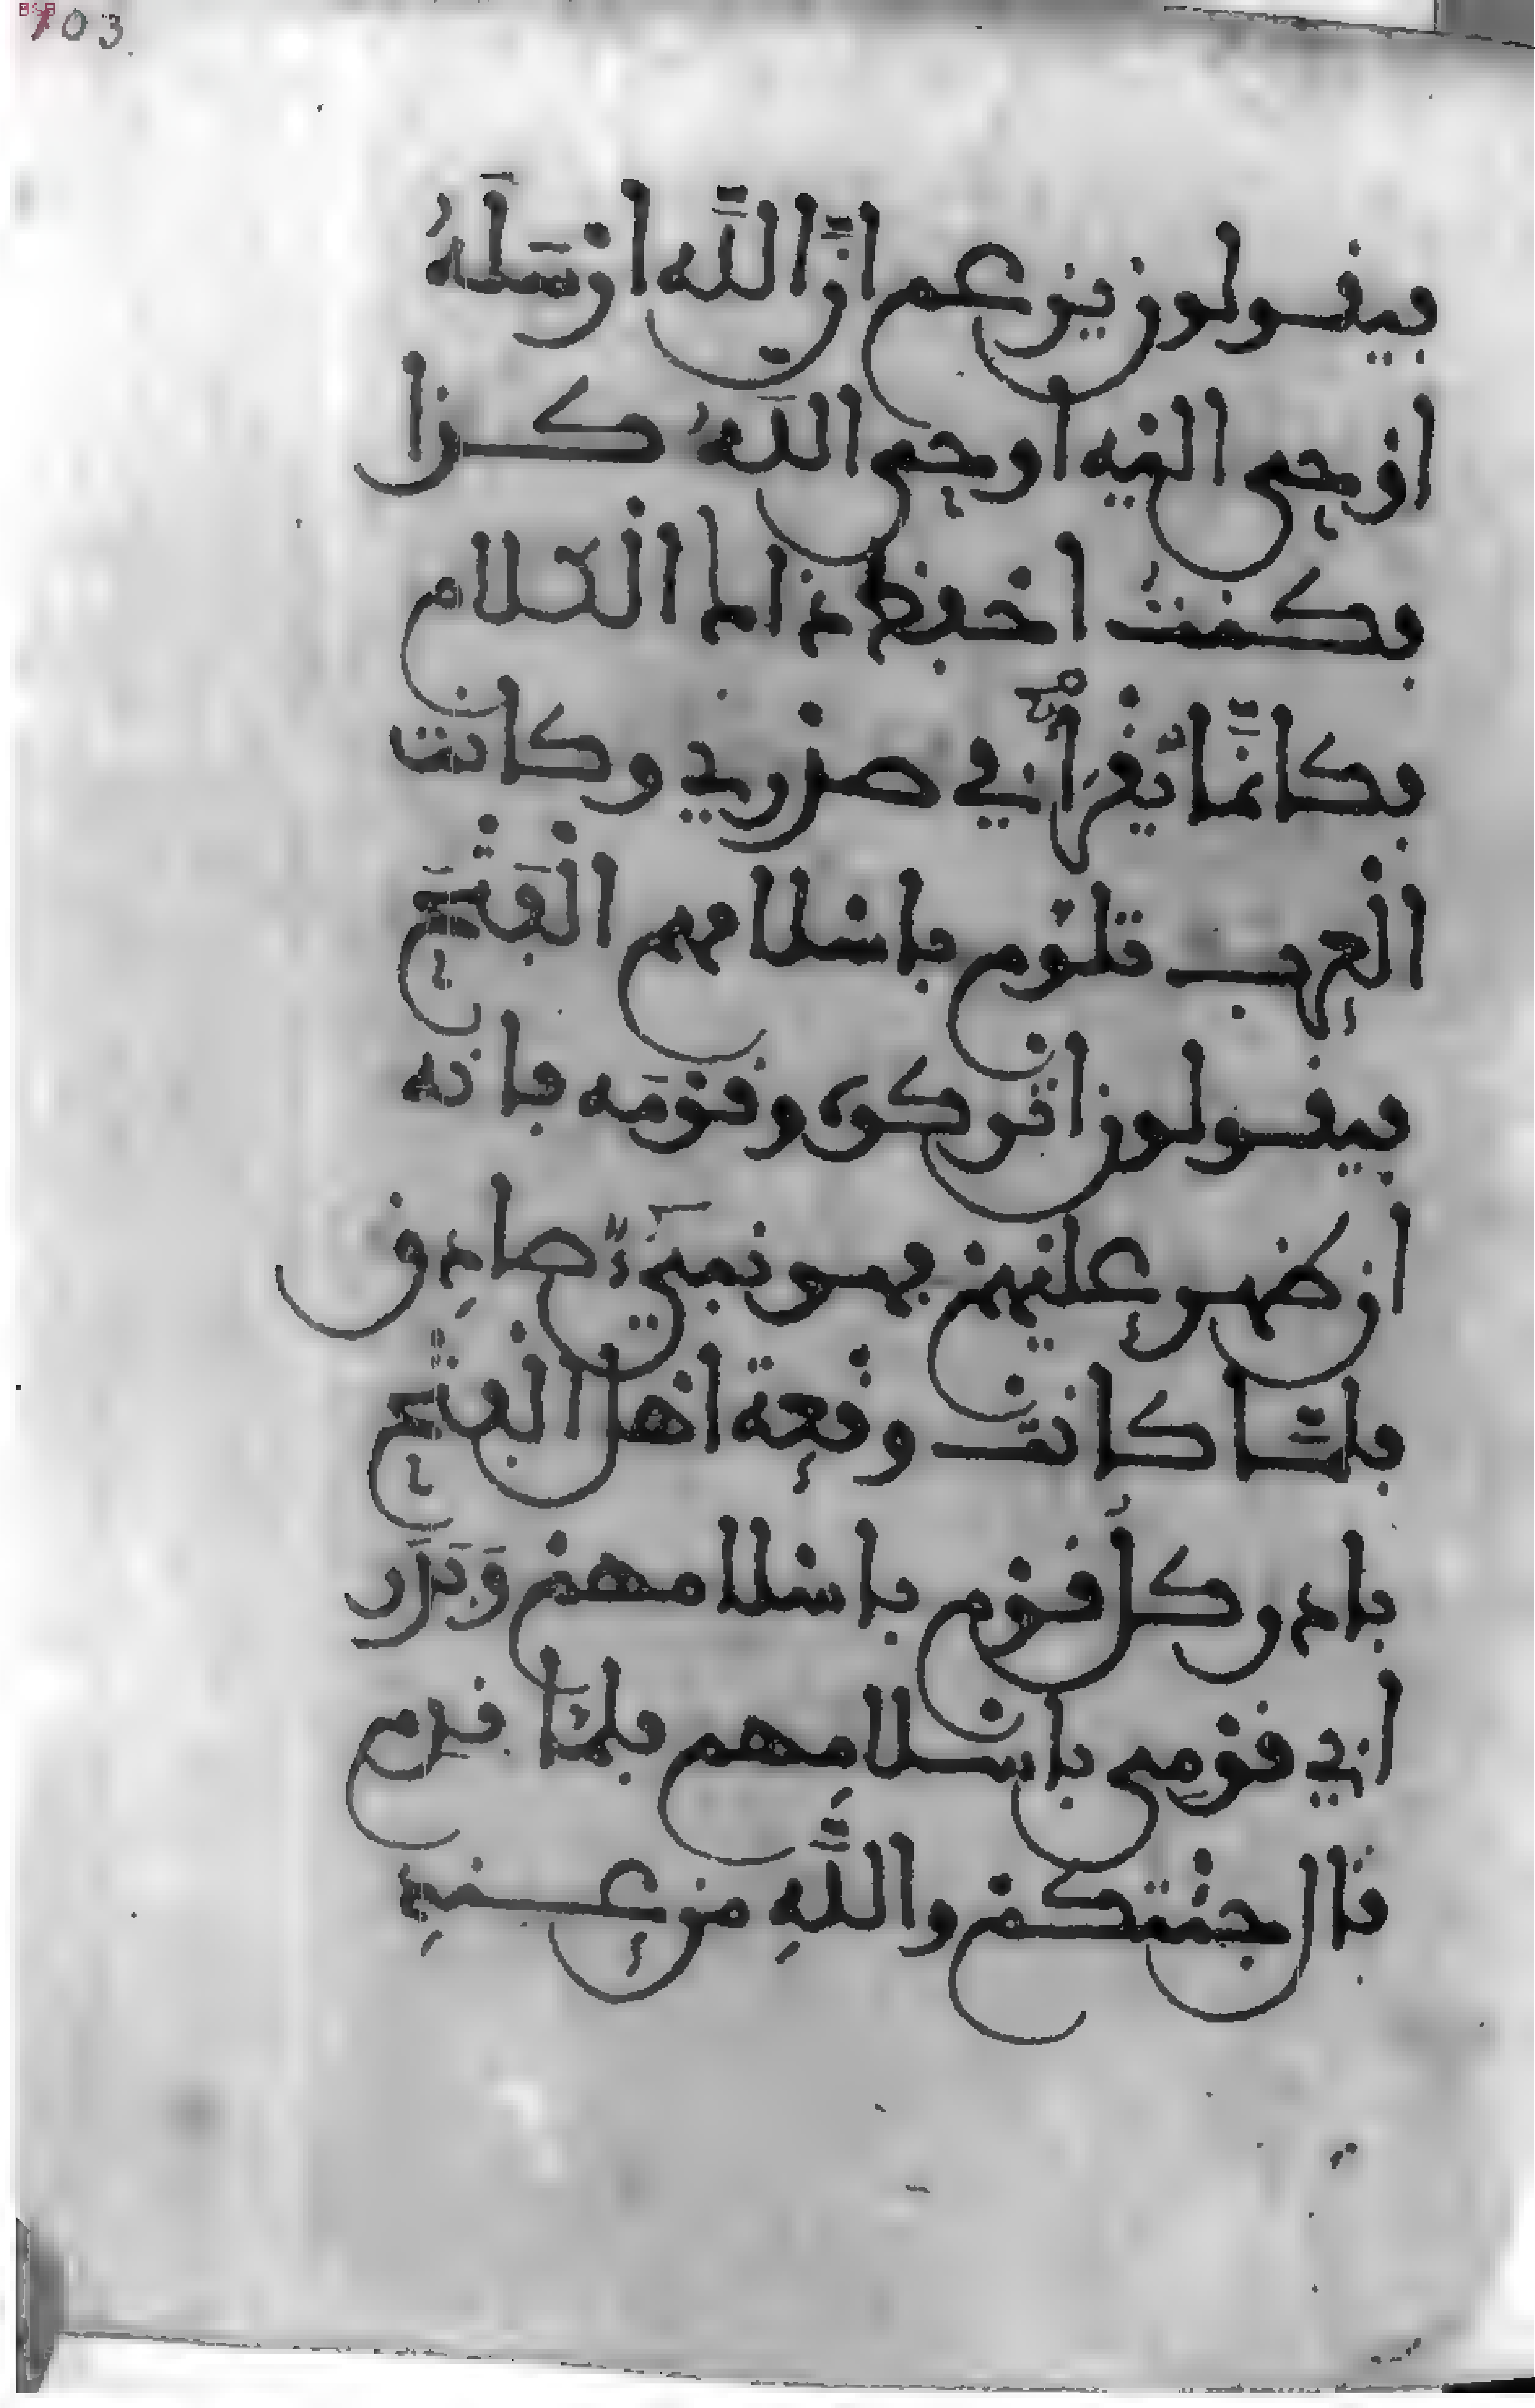 103
فيقولون يزعم انَّ الله ارسَلَهُ
اوحى اليه اوحى اللهُ كذا
فكنتُ احفظ ذاك الكلام
فكانَّما يُقْرَأُ في صدري وكانت
العرب تلوم باسلامهم الفَتْحَ
فيقولون اتركوه وقومَه فانه
ان ظهر عليهم فهو نبيٌّ صادِق
فلمَّا كانت وقعة اهل الفتح
بادر كلُ قوم باسلامهم وَبَدَر
ابي قومي باسلامِهم فلمَّا قدم
قال جئتكم واللَّهِ من عند